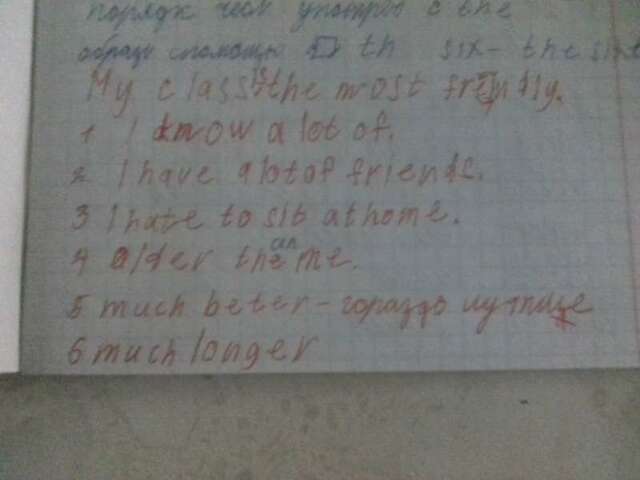 порядк числ употреб с the
образ спомощью th six - the sixt
My class is the most friendly.
1 I know a lot of.
2 I have a lot of friends.
3 I hate to sit at home.
4 older than me.
5 much beter - гораздо лутше
6 much longer